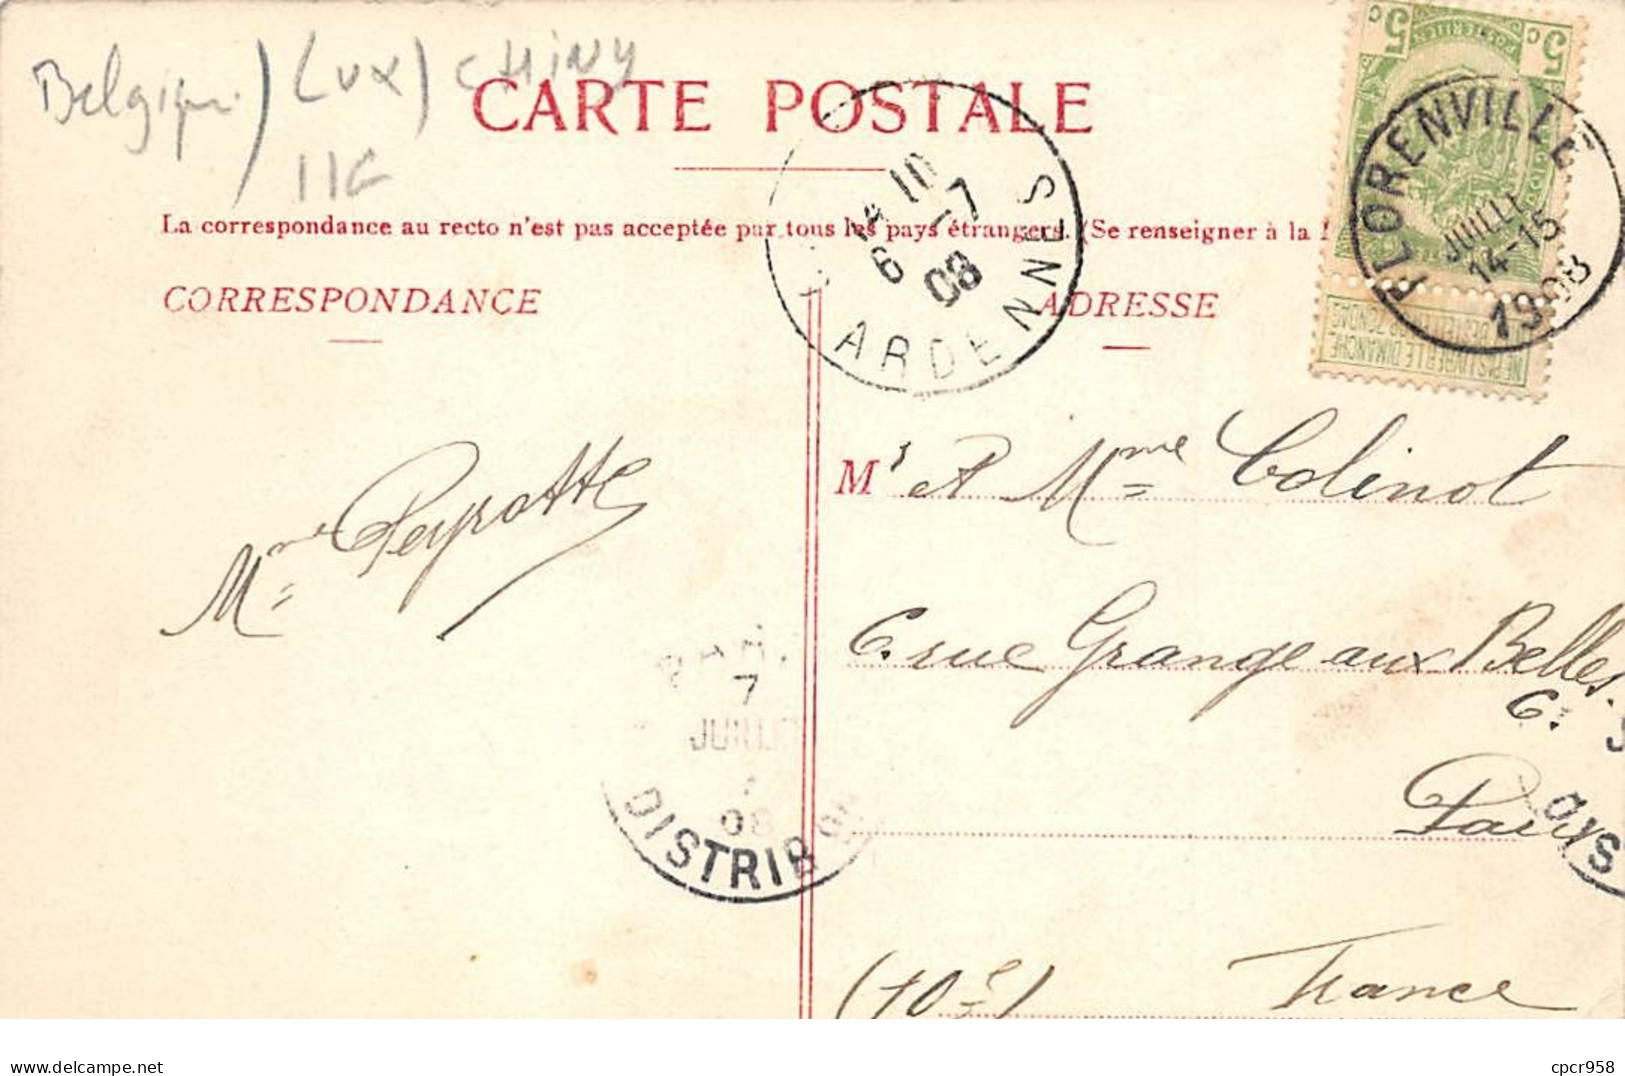 Belgique) (Lux) CHINY
11€
CARTE POSTALE
La correspondance au recto n'est pas acceptée par tous les pays étrangers. (Se renseigner à la
CORRESPONDANCE
ADRESSE
5c 5c
POSTERIJEN
NE PAS LIVRER LE DIMANCHE
FLORENVILLE
JUILL
14-15
1908
10
6 -7
08
ARDENNES
Mme Peyrotte
Mr & Mme Colinot
6. rue Grange aux Belles.
Paris
(10e)
France
7
JUILLET
08
DISTRIB ON
6.
DIS
www.delcampe.net
cpcr958